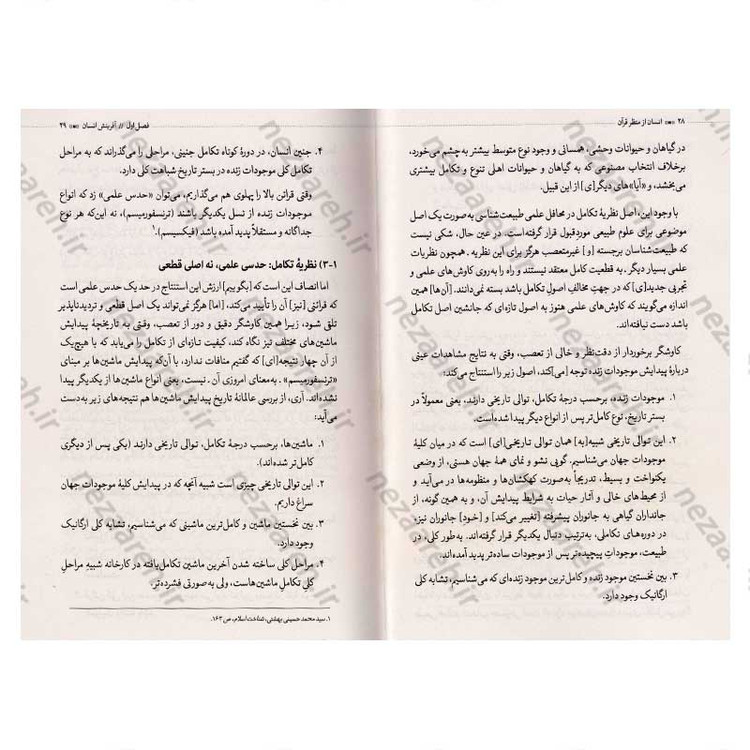 ۲۸ انسان از منظر قرآن
در گیاهان و حیوانات وحشی، همسانی و وجود نوع متوسط بیشتر به چشم می‌خورد،
برخلاف انتخاب مصنوعی که به گیاهان و حیوانات اهلی تنوع و تکامل بیشتری
می‌بخشد، و «آیا»های دیگر[ی] از این قبیل.
با وجود این، اصل نظریهٔ تکامل در محافل علمی طبیعت‌شناسی به‌صورت یک اصل
موضوعی برای علوم طبیعی مورد قبول قرار گرفته است. در عین حال، شکی نیست
که طبیعت‌شناسان برجسته [و] غیرمتعصب هرگز برای این نظریه . همچون نظریات
علمی بسیار دیگر . به قطعیت کامل معتقد نیستند و راه را به روی کاوش‌های علمی و
تجربی جدید[ی] که در جهتِ مخالفِ اصول تکامل باشد بسته نمی‌دانند. [آن‌ها] همین
اندازه می‌گویند که کاوش‌های علمی هنوز به اصول تازه‌ای که جانشین اصل تکامل
باشد دست نیافته‌اند.
کاوشگر برخوردار از دقت‌نظر و خالی از تعصب، وقتی به نتایج مشاهدات عینی
دربارهٔ پیدایش موجودات زنده، توجه [می]کند، اصول زیر را استنتاج می‌کند:
۱. موجودات زنده، برحسب درجهٔ تکامل، توالی تاریخی دارند، یعنی معمولاً در
بستر تاریخ، نوع کامل‌تر پس از انواع دیگر پیدا شده است.
۲. این توالی تاریخی شبیه[به] همان توالی تاریخی[ای] است که در میان کلیهٔ
موجودات جهان می‌شناسیم. گویی نشو و نمای همهٔ جهان هستی، از وضعی
یکنواخت و بسیط، تدریجاً به‌صورت کهکشان‌ها و منظومه‌ها در می‌آید و
از محیط‌های خالی و آثار حیات به شرایط پیدایش آن، و به همین گونه، از
جانداران گیاهی به جانوران پیشرفته [تغییر می‌کند] و [خود] جانوران نیز،
در دوره‌های تکاملی، به‌ترتیب دنبال یکدیگر قرار گرفته‌اند. به‌طور کلی، در
طبیعت، موجودات پیچیده‌تر پس از موجودات ساده‌تر پدید آمده‌اند.
۳. بین نخستین موجود زنده و کامل‌ترین موجود زنده‌ای که می‌شناسیم، تشابه کلی
ارگانیک وجود دارد.
فصل اول // آفرینش انسان ۲۹
۴. جنین انسان، در دورهٔ کوتاه تکامل جنینی، مراحلی را می‌گذراند که به مراحل
تکامل کلی موجودات زنده در بستر تاریخ شباهت کلی دارد.
وقتی قرائن بالا را پهلوی هم می‌گذاریم، می‌توان «حدس علمی» زد که انواع
موجودات زنده از نسل یکدیگر باشند (ترنسفورمیسم)، نه این‌که هر نوع
جداگانه و مستقلاً پدید آمده باشد (فیکسیسم).۱
۳-۱) نظریهٔ تکامل: حدسی علمی، نه اصلی قطعی
اما انصاف این است که [بگوییم] ارزش این استنتاج در حد یک حدس علمی است که
قرائنی [نیز] آن را تأیید می‌کند، [اما] هرگز نمی‌تواند یک اصل قطعی و تردیدناپذیر
تلقی شود، زیرا همین کاوشگر دقیق و دور از تعصب، وقتی به تاریخچهٔ پیدایش
ماشین‌های مختلف نیز نگاه کند، کیفیت تازه‌ای از تکامل را می‌یابد که با هیچ‌یک
از آن چهار نتیجه[ای] که گفتیم منافات ندارد، با آن‌که پیدایش ماشین‌ها بر مبنای
«ترنسفورمیسم» . به‌معنای امروزی آن . نیست، یعنی انواع ماشین‌ها از یکدیگر پیدا
نشده‌اند. آری، از بررسی عالمانهٔ تاریخ پیدایش ماشین‌ها هم نتیجه‌های زیر به‌دست
می‌آید:
۱. ماشین‌ها، برحسب درجهٔ تکامل، توالی تاریخی دارند (یکی پس از دیگری
کامل‌تر شده‌اند).
۲. این توالی تاریخی چیزی است شبیه آنچه که در پیدایش کلیهٔ موجودات جهان
سراغ داریم.
۳. بین نخستین ماشین و کامل‌ترین ماشینی که می‌شناسیم، تشابه کلی ارگانیک
وجود دارد.
۴. مراحل کلی ساخته شدن آخرین ماشین تکامل‌یافته در کارخانه شبیهِ مراحلِ
کلیِ تکاملِ ماشین‌هاست، ولی به‌صورتی فشرده‌تر.
۱. سید محمد حسینی بهشتی، شناخت اسلام، ص ۱۶۳.
nezaareh.ir